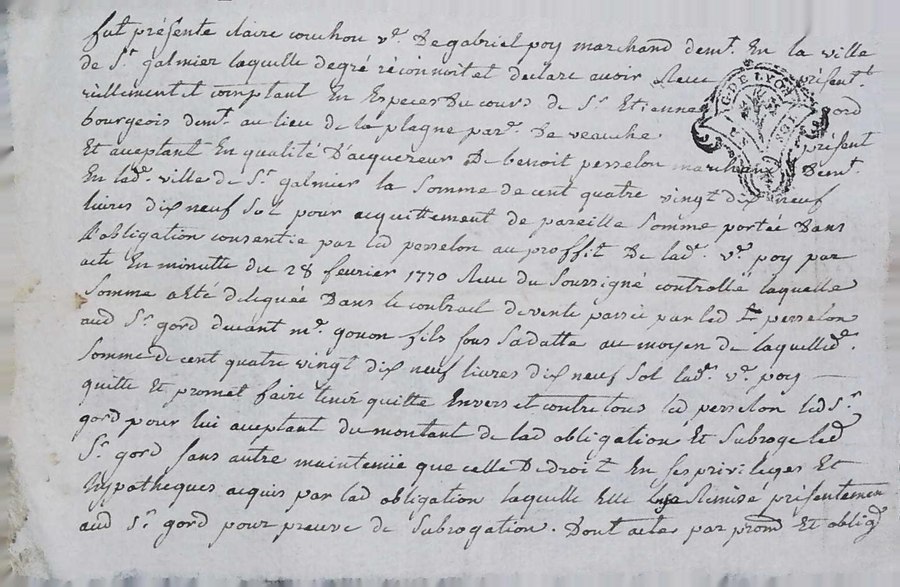 fut présente claire couchou v.e De gabriel poy marchand dem.t En la ville
de S.t galmier laquelle degré réconnoit et déclare avoir Receu présent.t
réellement et comptant En Especes du cours de S.r Etienne gord
bourgeois dem.t au lieu de la plagne par.e De veauche présent
Et aceptant En qualité D'acquereur De benoit perselon marchand Dem.t
En lad.e ville de S.t galmier la Somme de cent quatre vingt dix neuf
livres dix neuf Sol pour acquittement de pareille Somme portée Dans
l'obligation consentie par led perselon au proffit De lad.e v.e poy par
acte En minutte du 28 fevrier 1770 Receu du Soussigné controllé laquelle
Somme a Eté deleguée Dans le contract de vente passé par led perselon
aud S.r gord devant m.e gonon fils sous Sa datte au moyen de laquelle d.e
Somme de cent quatre vingt dix neuf livres dix neuf Sol lad.e v.e poy
quitte Et promet faire tenir quitte Envers et contre tous led perselon led S.r
gord pour lui aceptant du montant de lad obligation Et Subroge led
S.r gord sans autre maintenüe que celle De droit En ses privileges Et
hypotheques acquis par lad obligation laquelle Elle a Remisé présentemen
aud S.r gord pour preuve de Subrogation. Dont actes par prom Et oblig
G. DE LYON